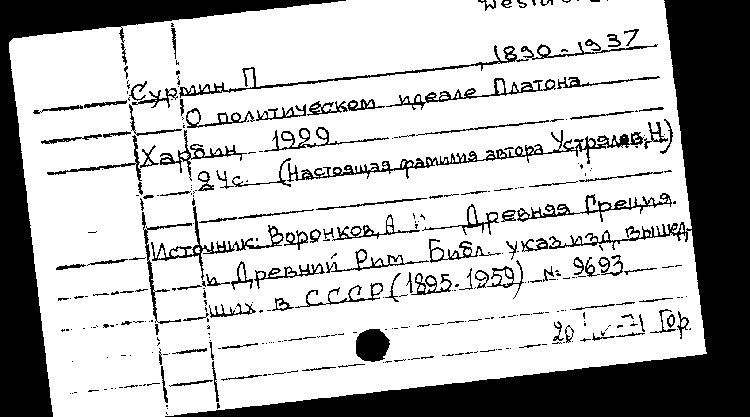 Сурмин П , 1890-1937
О политическом идеале Платона
Харбин, 1929.
24с. (Настоящая фамилия автора Устрялов, Н)
Источник: Воронков, А. Древняя Греция.
и Древний Рим. Библ. указ. изд. вышед-
ших. в СССР (1895-1959) № 9693
20 -71 Гор